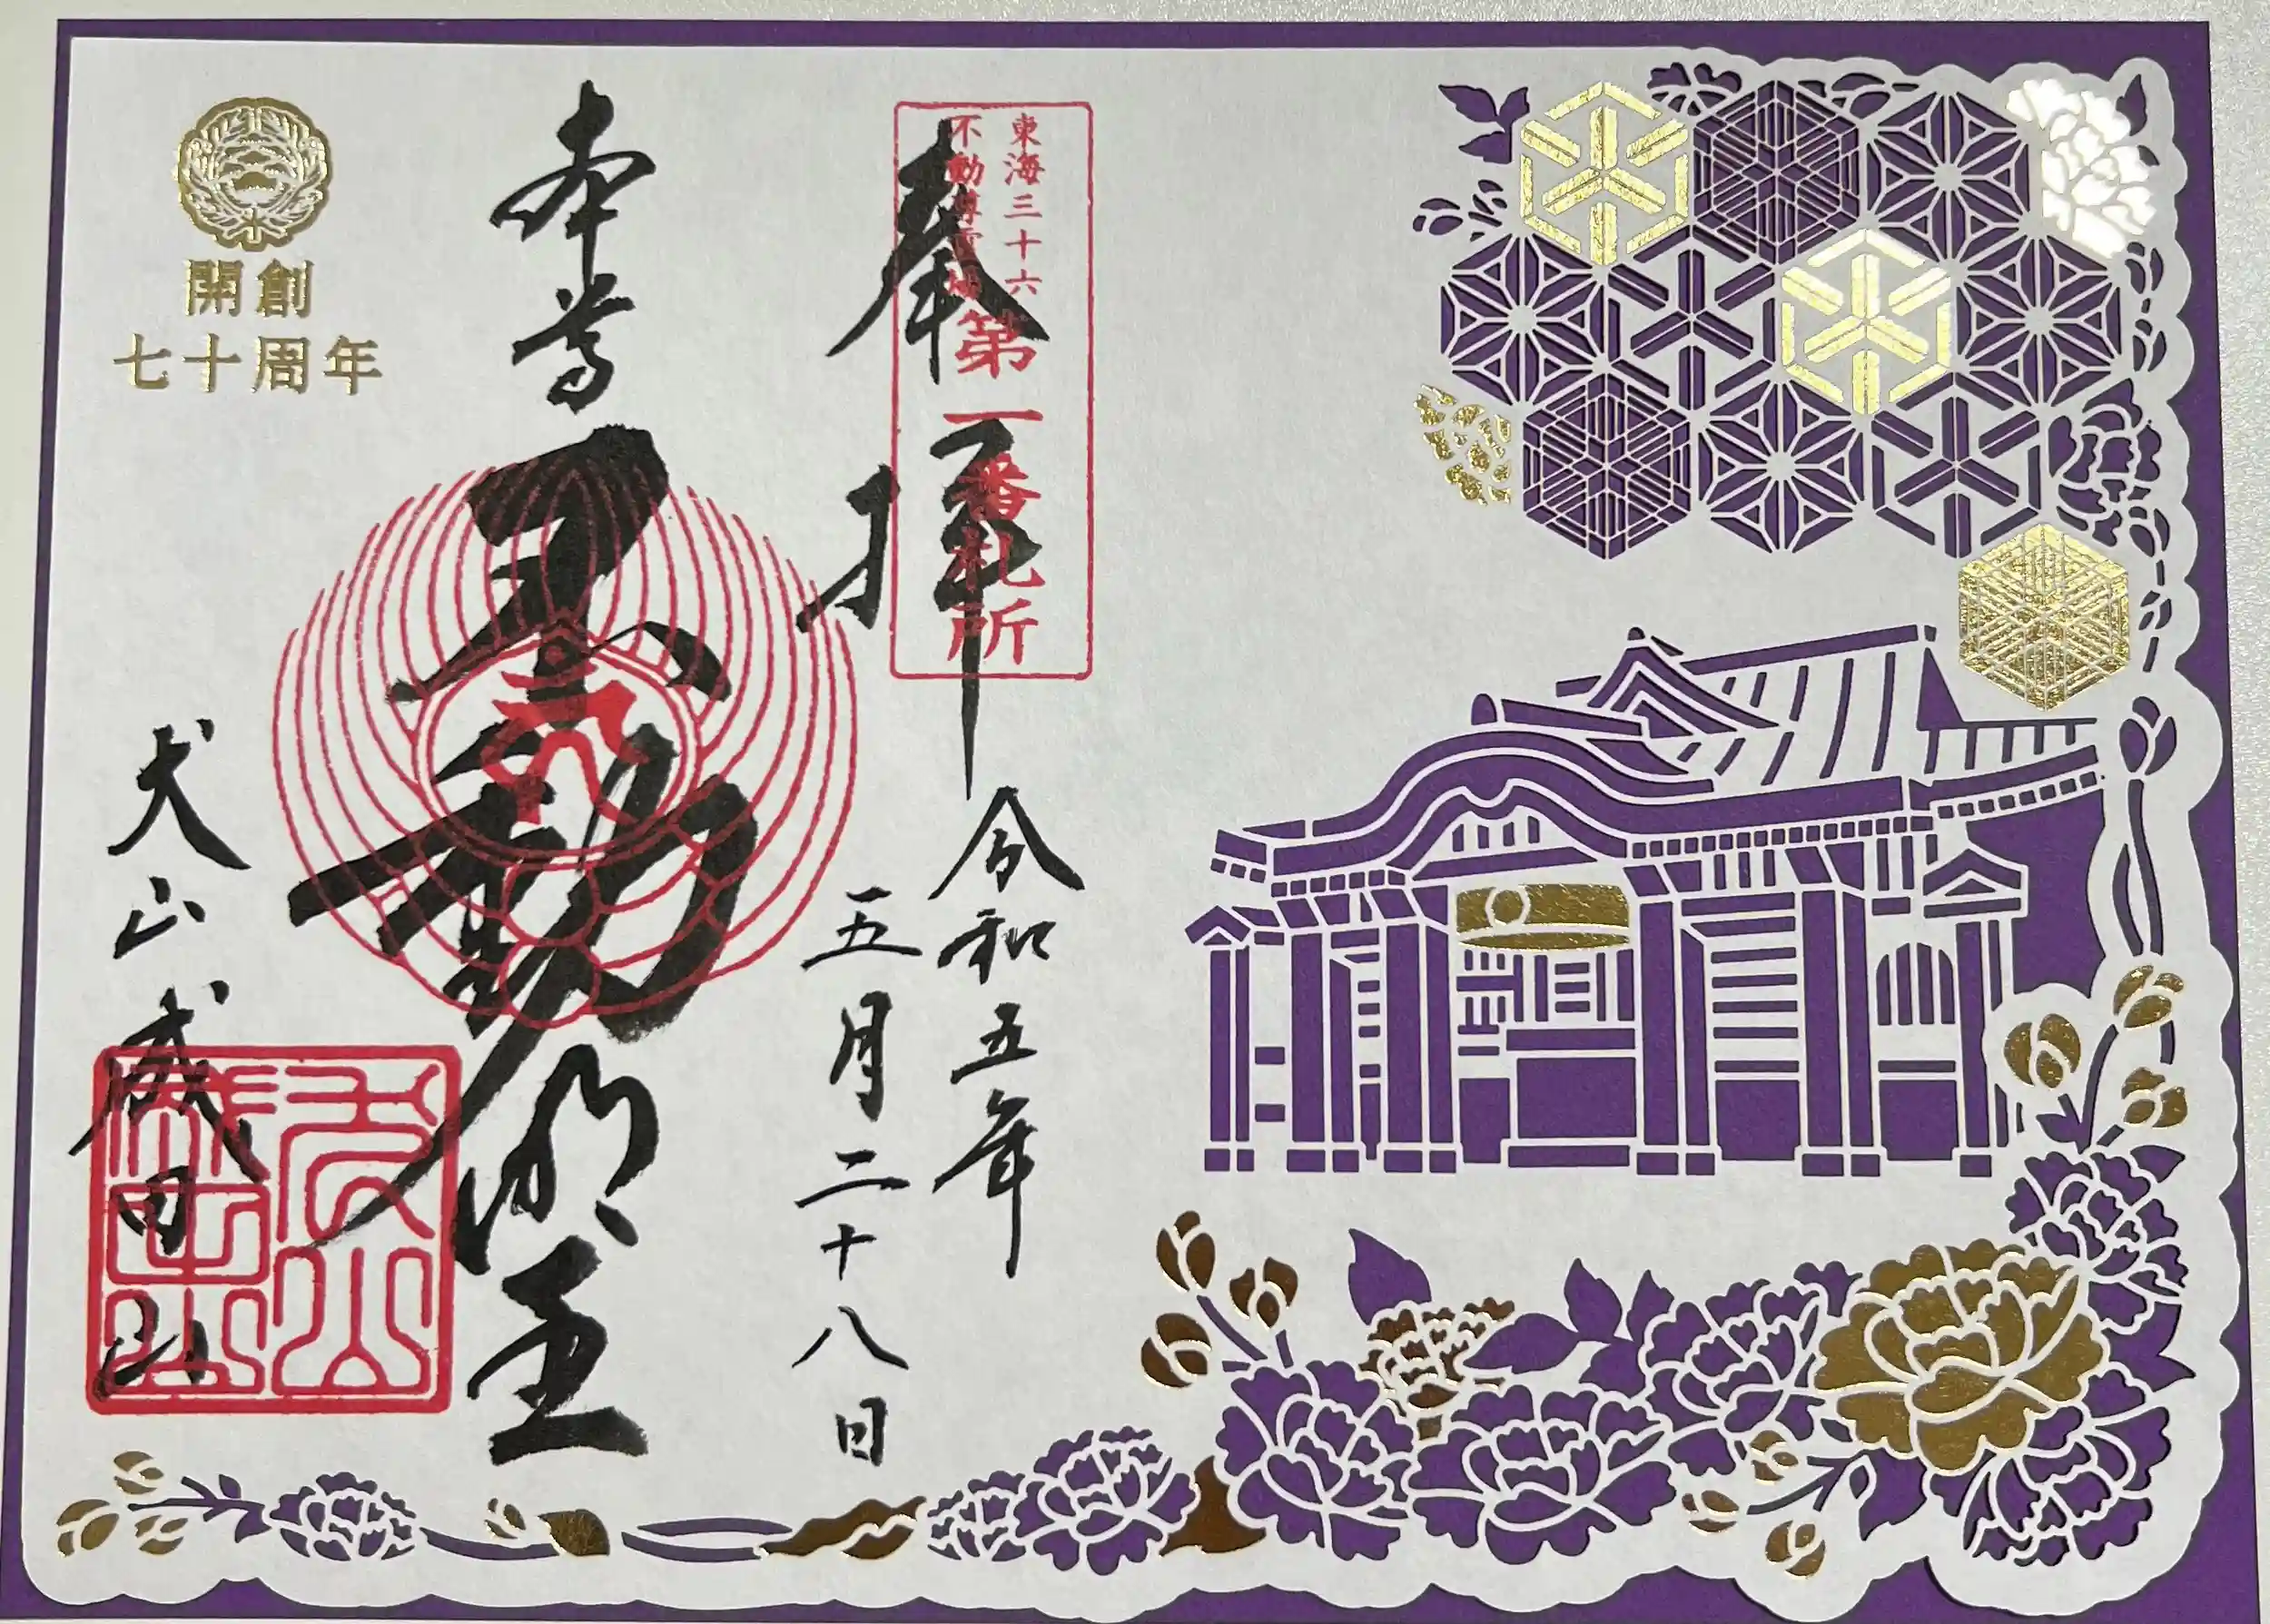 東海三十六
不動尊霊場
第一番札所
奉拝
令和五年
五月二十八日
本尊
不動明王
開創
七十周年
犬山成田山